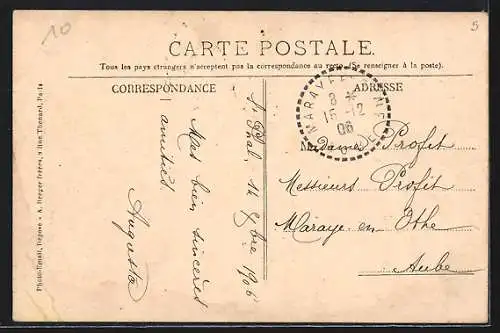 10
5
CARTE POSTALE.
Tous les pays étrangers n'acceptent pas la correspondance au recto (Se renseigner à la poste).
CORRESPONDANCE
ADRESSE
St Phal, 14 Xbre 1906
Mes bien sincères
amitiés.
Augusta
8 *
15 12
06
AUBE
Madame Profit
Messieurs Profit
Maraye en Othe
Aube
A. Berger frères, 9 Rue Thénard, Paris